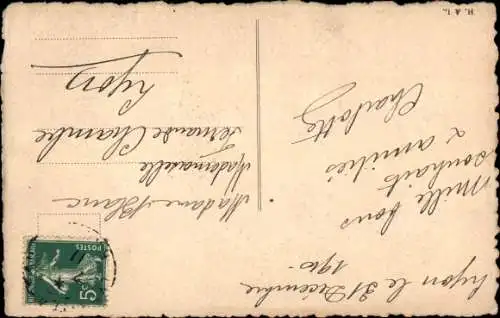 Lyon le 31 Décembre
1910.
Mille bons
souhaits
& amitiés
Charlotte
Madame Blanc
Mademoiselle
Fernande Chambe
Lyon
H. & L.
POSTES
5c